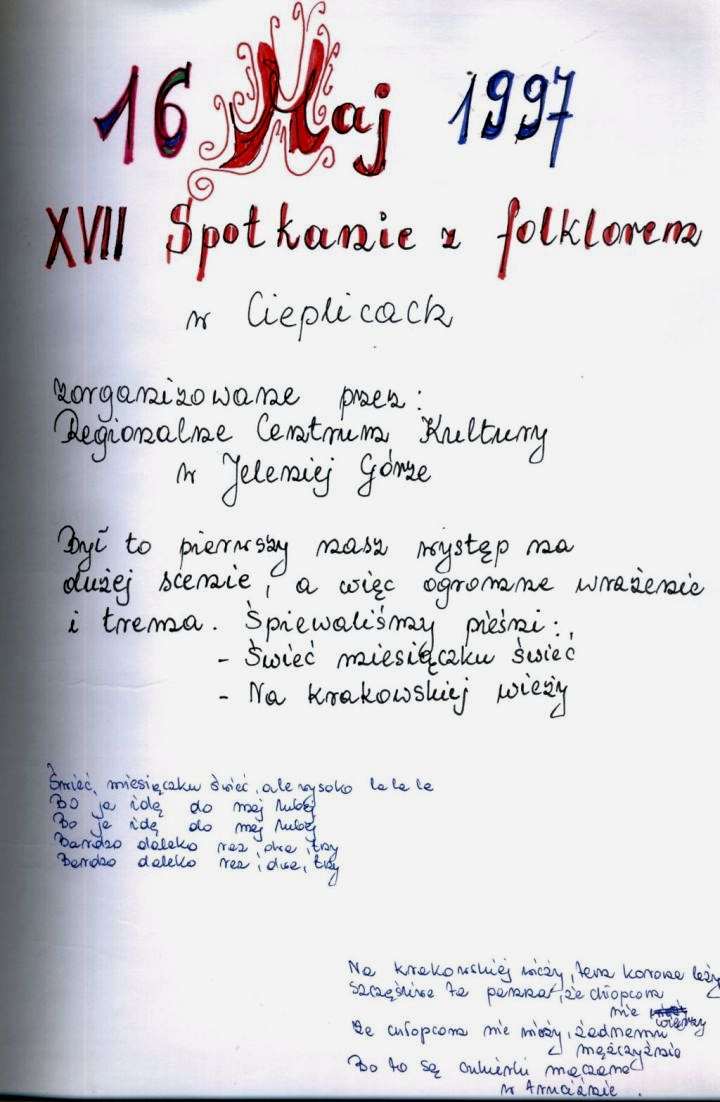 16 Maj 1997
XVII Spotkanie z folklorem
w Cieplicach
zorganizowane przez:
Regionalne Centrum Kultury
w Jeleniej Górze
Był to pierwszy nasz występ na
dużej scenie, a więc ogromne wrażenie
i trema. Śpiewaliśmy pieśni:
- Świeć miesiączku świeć
- Na krakowskiej wieży
Świeć miesiączku świeć, ale wysoko la la la
Bo ja idę do mej lubej
Bo ja idę do mej lubej
Bardzo daleko raz, dwa, trzy
Bardzo daleko raz i dwa, trzy
Na krakowskiej wieży, tam korona leży
Szczęśliwa ta panna, że chłopcom
nie
wierzy
Że chłopcom nie wierzy, żadnemu
mężczyźnie
Bo to są cukierki maczane
w